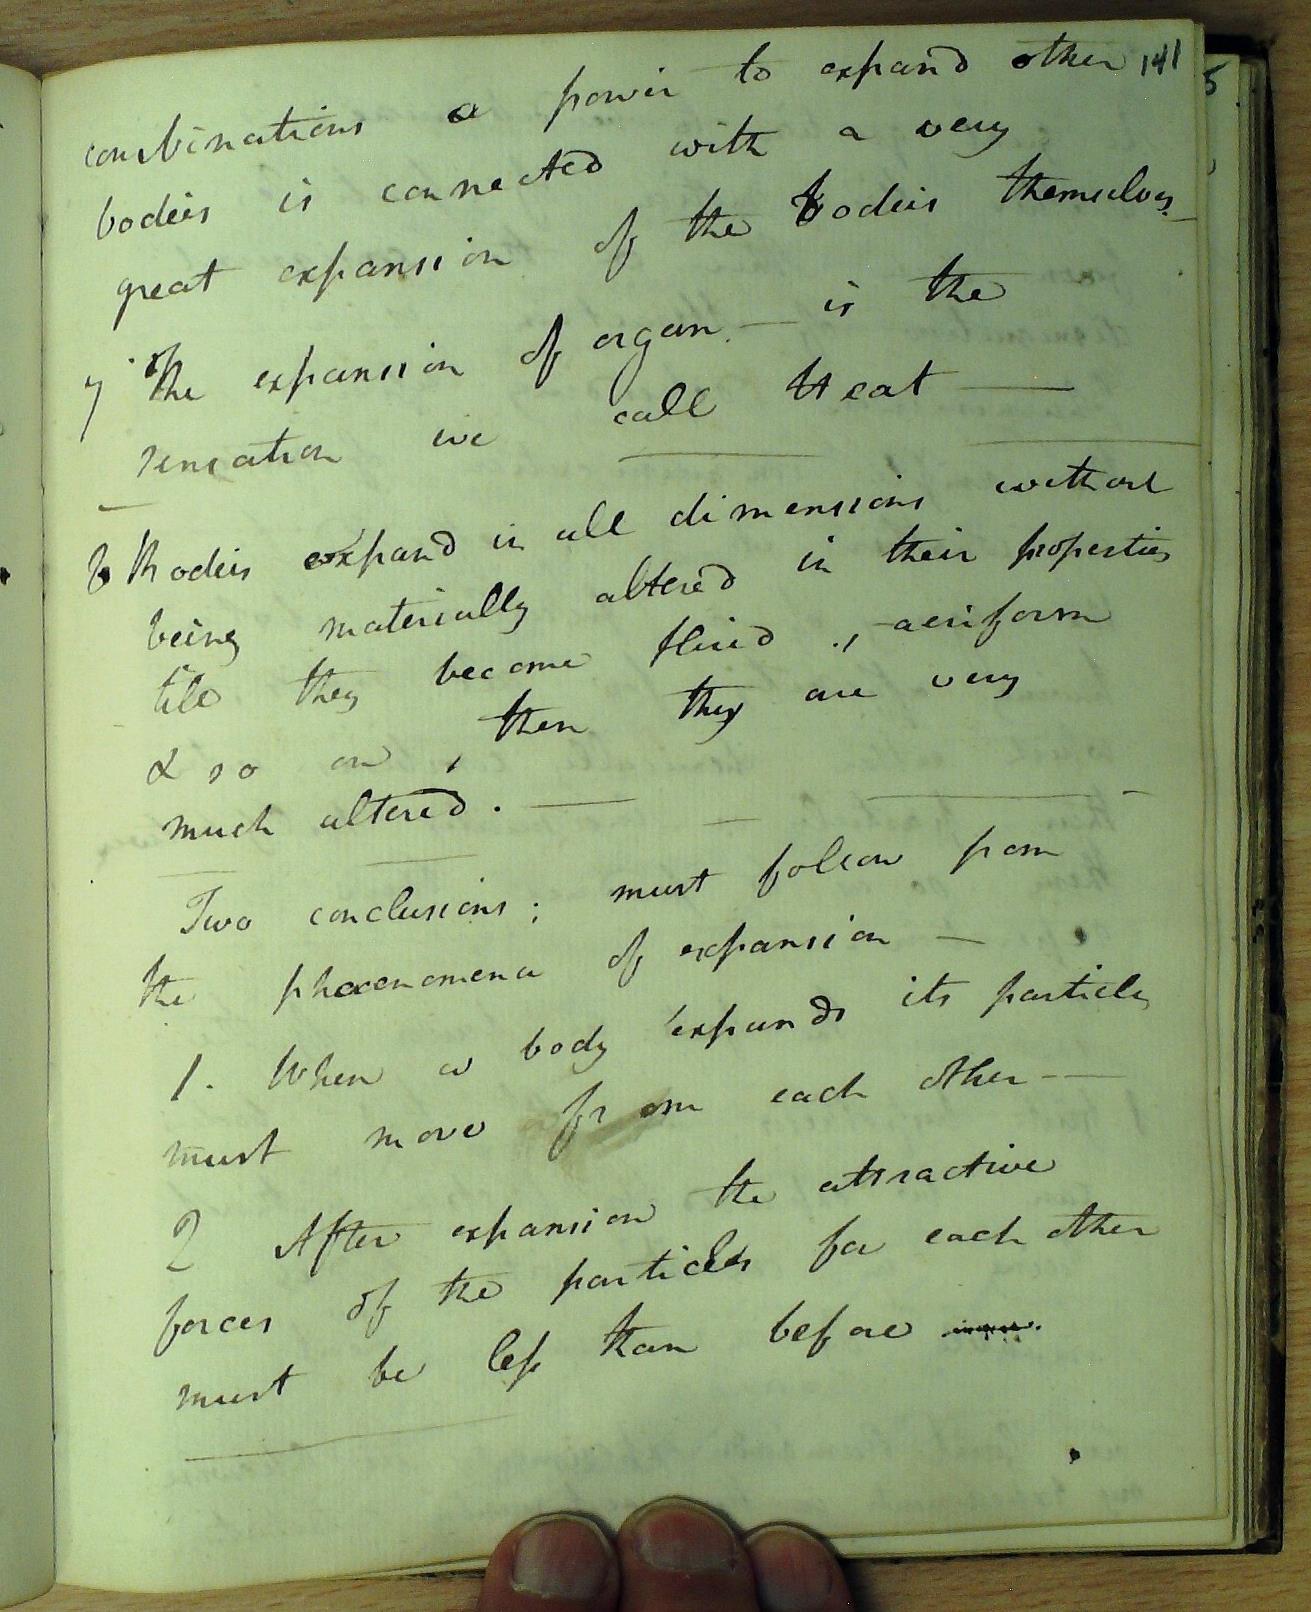 141
combinations a power to expand other
bodies is connected with a very
great expansion of the bodies themselves
7 The expansion of organ — is the
sensation we call Heat —
8 Bodies expand in all dimensions without
being materially altered in their properties
till they become fluid, aeriform
& so on, then they are very
much altered. —
Two conclusions; must follow from
the phaenomena of expansion —
1. When a body expands its particles
must move from each other —
2 After expansion the attractive
forces of the particles for each other
must be less than before
5